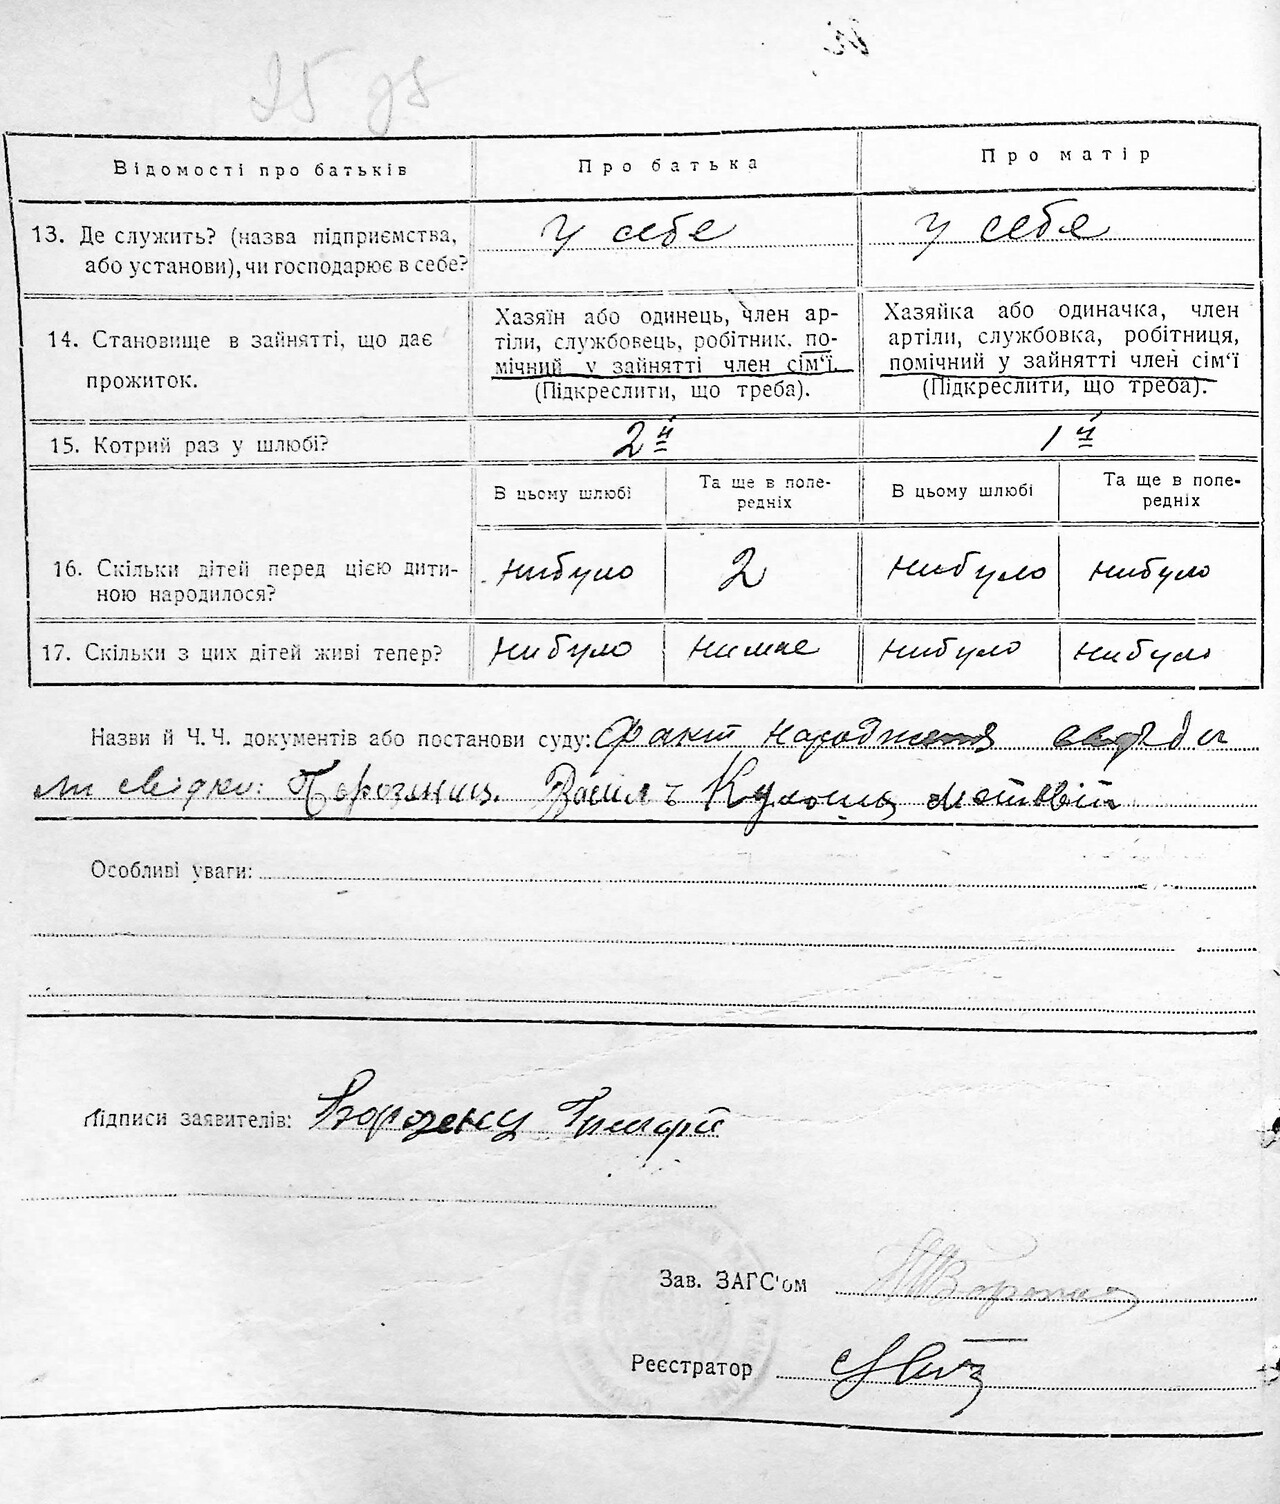 25
Відомості про батьків
Про батька
Про матір
13. Де служить? (назва підприємства,
або установи), чи господарює в себе?
у себе
у себе
14. Становище в зайнятті, що дає
прожиток.
Хазяїн або одинець, член ар-
тіли, службовець, робітник. по-
мічний у зайнятті член сім‘ї.
(Підкреслити, що треба).
Хазяйка або одиначка, член
артіли, службовка, робітниця,
помічний у зайнятті член сім‘ї
(Підкреслити, що треба).
15. Котрий раз у шлюбі?
2й
1й
В цьому шлюбі
Та ще в попе-
редніх
В цьому шлюбі
Та ще в попе-
редніх
16. Скільки дітей перед цією дити-
ною народилося?
нибуло
2
нибуло
нибуло
17. Скільки з цих дітей живі тепер?
нибуло
нимає
нибуло
нибуло
Назви й Ч. Ч. документів або постанови суду: факт народження
ли свідки: Василь
Особливі уваги:
Підписи заявителів:
Зав. ЗАГС'ом
Реєстратор